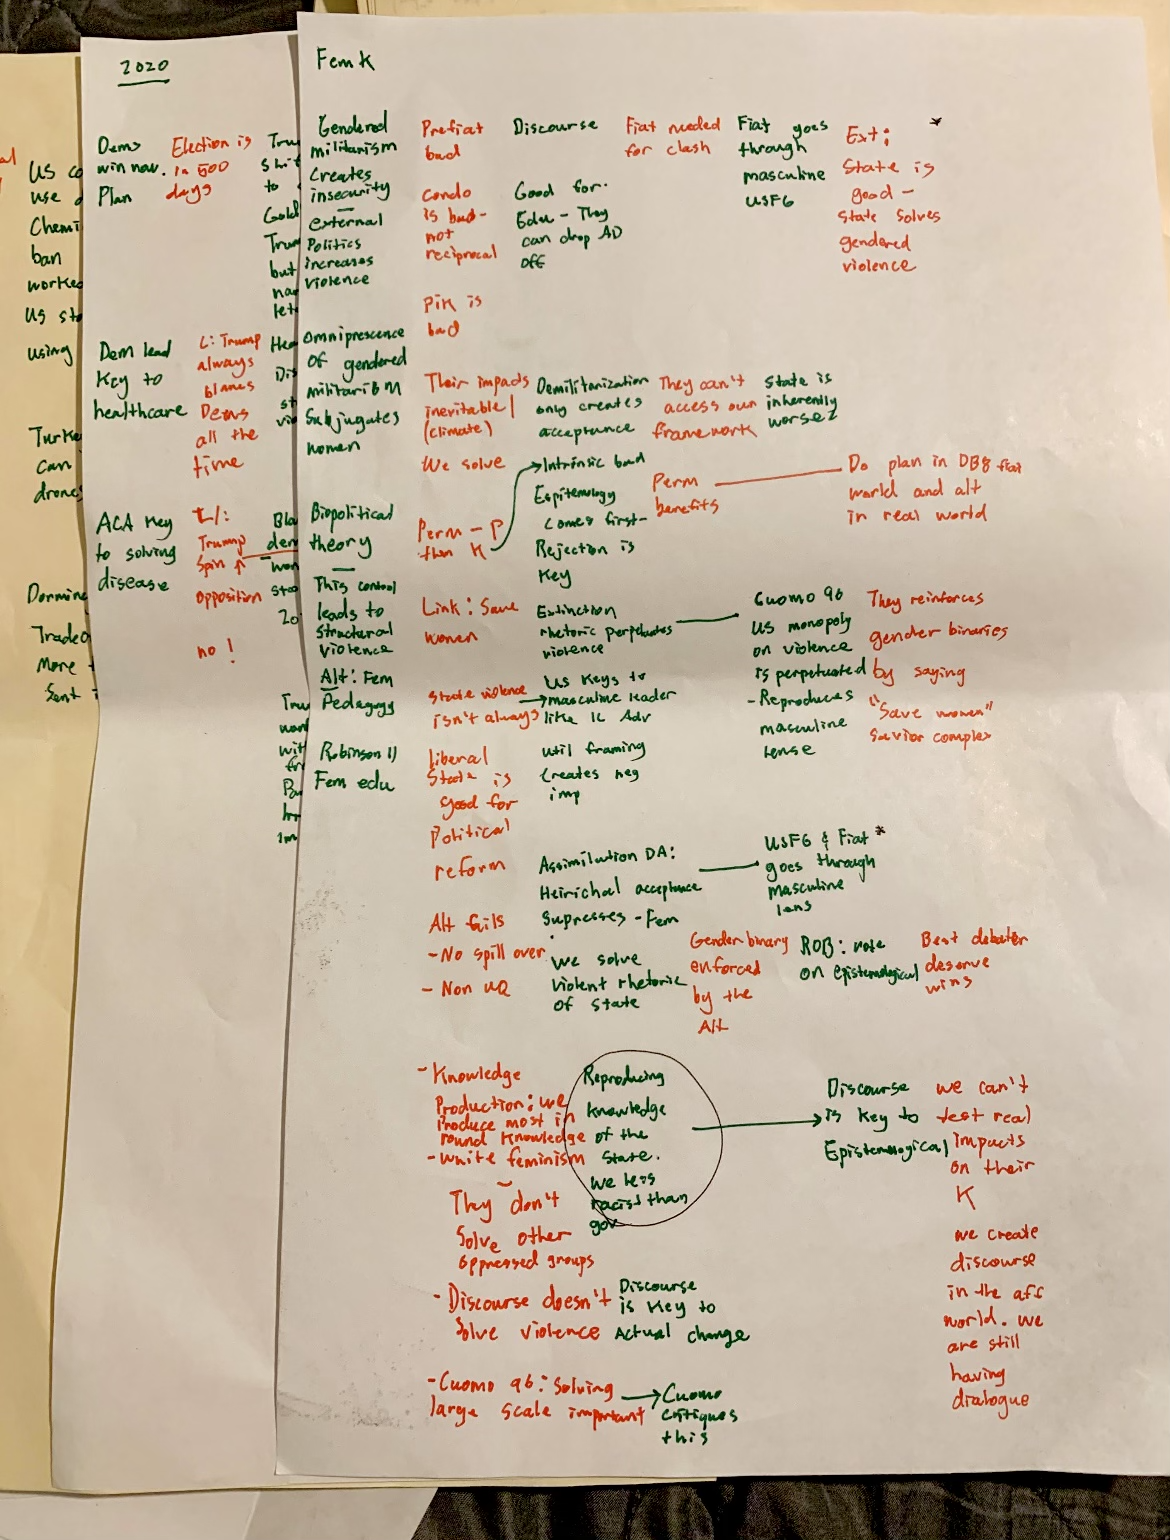 al
US co
use
Chemi
ban
worked
US sto
using
Turke
can
drones
Dormin
Tradeo
More
Sent i
2020
Dems
win nov.
Plan
Election is
in 500
days
Tru
shit
to
Gold
Trum
but
na
let
Dem lead
Key to
healthcare
L: Trump
always
blames
Dems
all the
time
Hea
Dis
st
vio
ACA Key
to solving
disease
L/:
Trump
Spin ↑
opposition
no!
Bla
dem
won
stoo
20
Trum
wor
wit
fr
Pa
hr
Im
Fem K
Gendered
militarism
Creates
insecurity
—
external
Politics
increases
violence
Omniprescence
of gendered
militarism
Subjugates
women
Biopolitical
theory
—
This control
leads to
Structural
violence
Alt: Fem
Pedagogy
Robinson 11
Fem edu
Prefiat
bad
Condo
is bad-
not
reciprocal
PiK is
bad
Their impacts
inevitable
(climate)
We solve
Perm - P
then K
Link: Save
women
State violence
isn't always
liberal
State is
good for
Political
reform
Alt fails
- No spill over
- Non UQ
- Knowledge
Production: we
Produce most in
round Knowledge
- White feminism
They don't
Solve other
oppressed groups
- Discourse doesn't
Solve violence
- Cuomo 96: Solving
large scale important
Discourse
Good for
Edu - They
can drop AD
off
Demilitarization
only creates
acceptance
Intrinsic bad
Espitemology
comes first-
Rejection is
Key
Extinction
rhetoric perpetuates
violence
US Keys to
masculine leader
like IC Adv
util framing
Creates neg
imp
Assimilation DA:
Heirichal acceptance
Supresses - Fem
we solve
violent rhetoric
of State
Reproducing
Knowledge
of the
State.
We less
racist than
gov
Discourse
is Key to
Actual change
Cuomo
critiques
this
Fiat needed
for clash
They can't
access our
framework
Perm
benefits
Gender binary
enforced
by the
Alt
Fiat goes
through
masculine
USFG
State is
inherently
worse?
Cuomo 96
US monopoly
on violence
is perpetuated
- Reproduces
masculine
lense
USFG & Fiat *
goes through
masculine
lens
ROB: vote
on epistemological
Discourse
is Key to
Epistemological
*
Ext:
State is
good -
State solves
gendered
violence
Do plan in DB8 fiat
world and alt
in real world
They reinforces
gender binaries
by saying
"Save women"
Savior complex
Best debater
deserve
wins
we can't
test real
impacts
on their
K
we create
discourse
in the aff
world. we
are still
having
dialogue